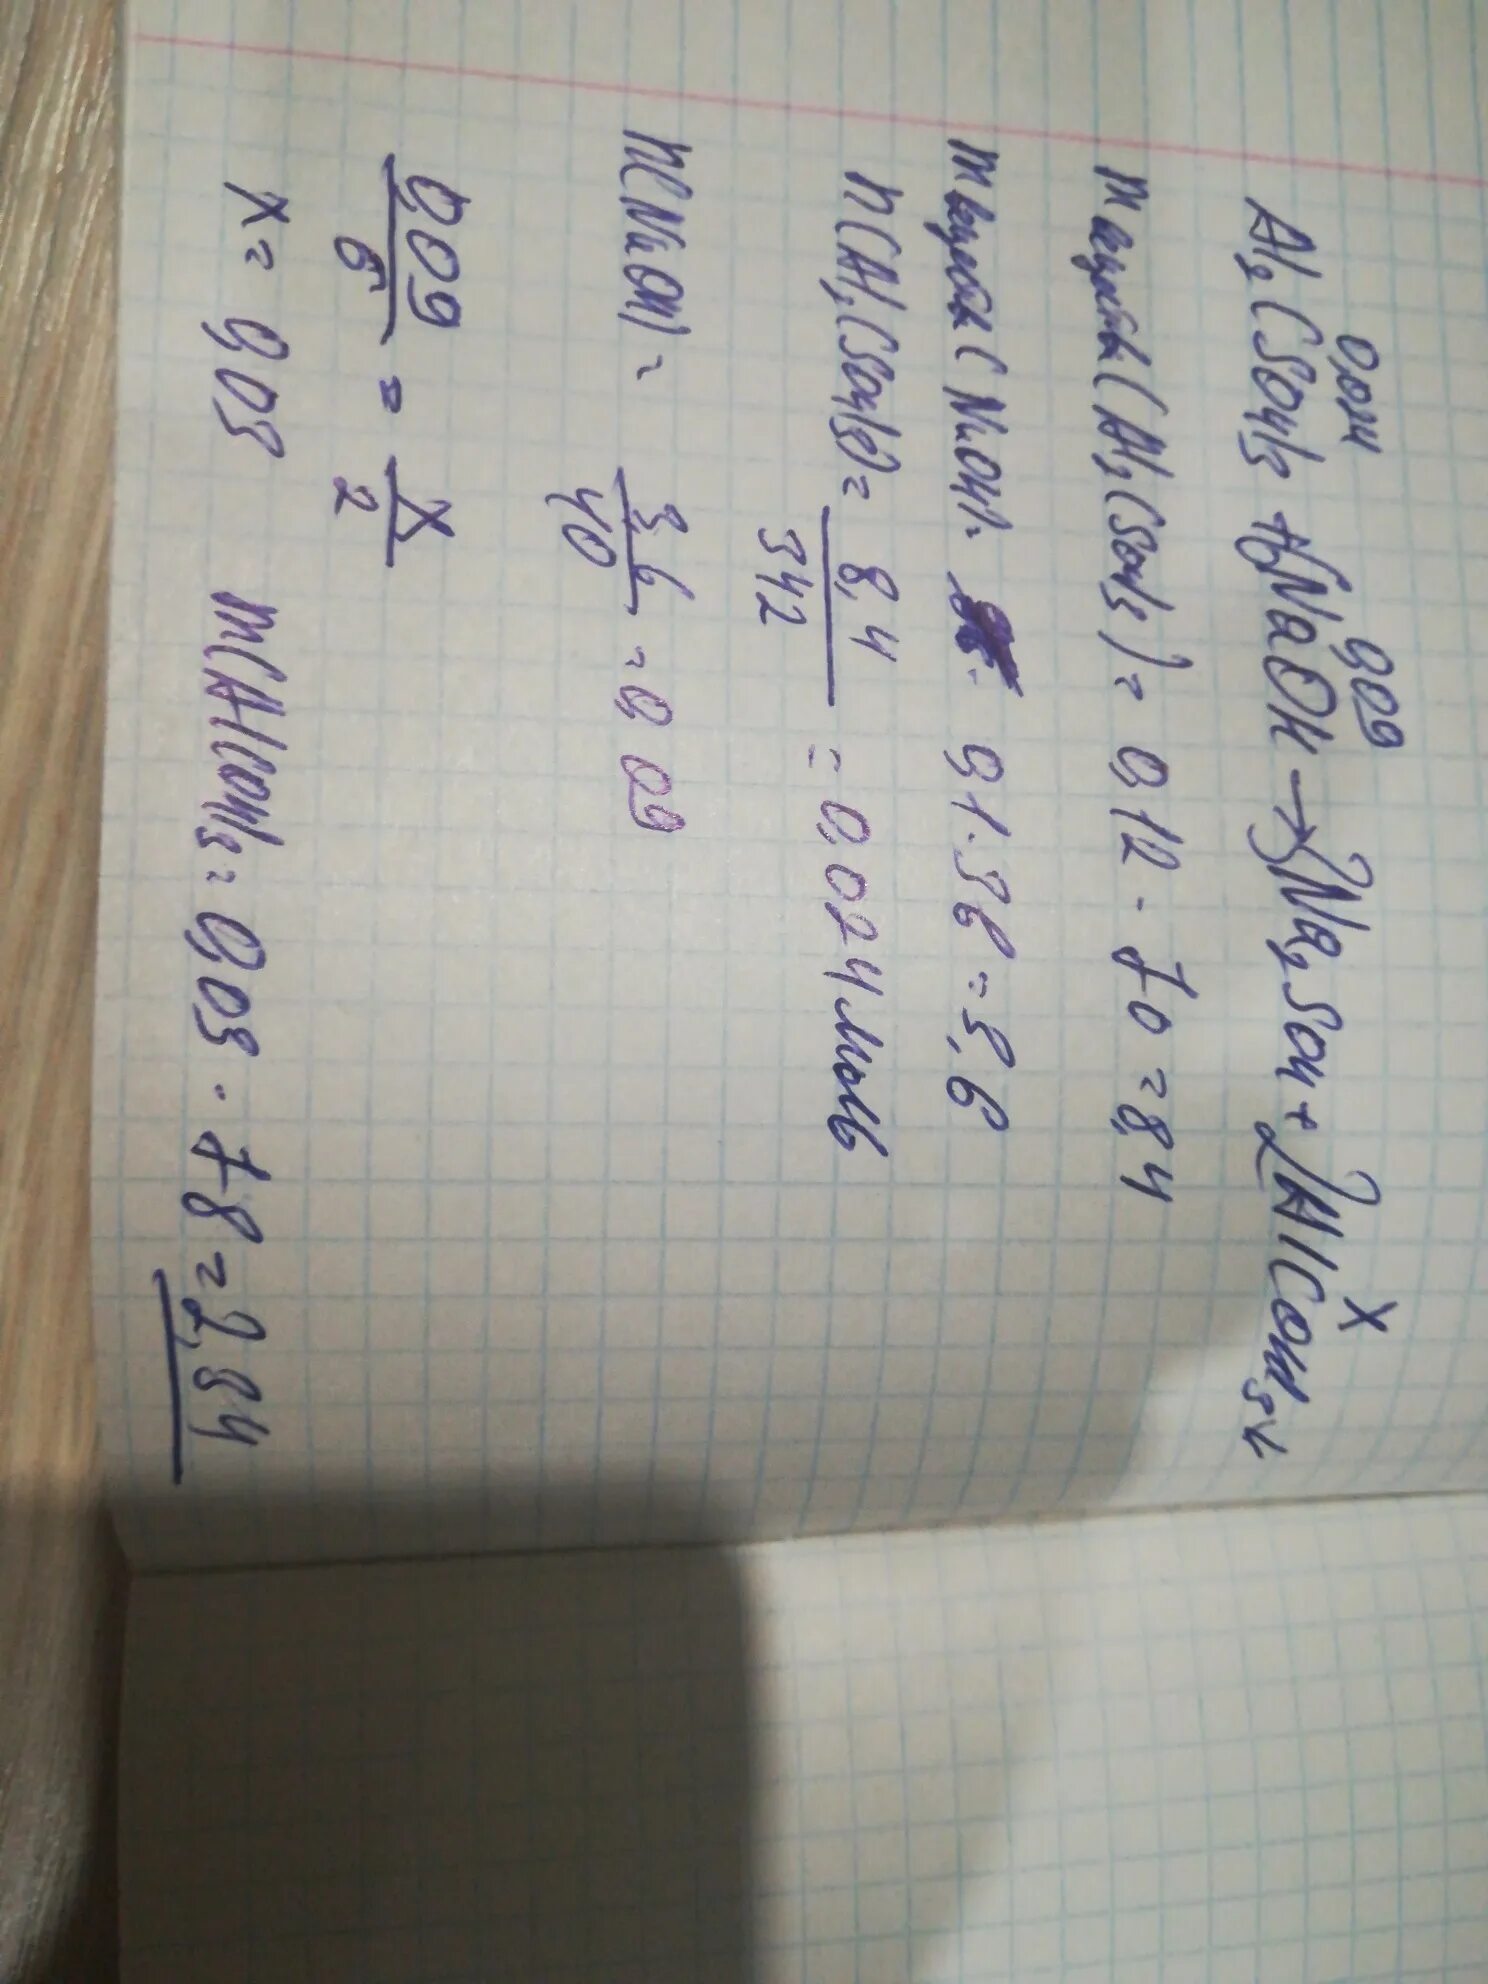 0,024 0,09 X
Al₂(SO₄)₃ + 6NaOH → 3Na₂SO₄ + 2Al(OH)₃↓
m вещества (Al₂(SO₄)₃) = 0,12 · 70 = 8,4
m вещества (NaOH) = 0,1 · 36 = 3,6
n(Al₂(SO₄)₃) = 8,4 / 342 = 0,024 моль
n(NaOH) = 3,6 / 40 = 0,09
0,09 / 6 = x / 2
x = 0,03 m(Al(OH)₃ = 0,03 · 78 = 2,34